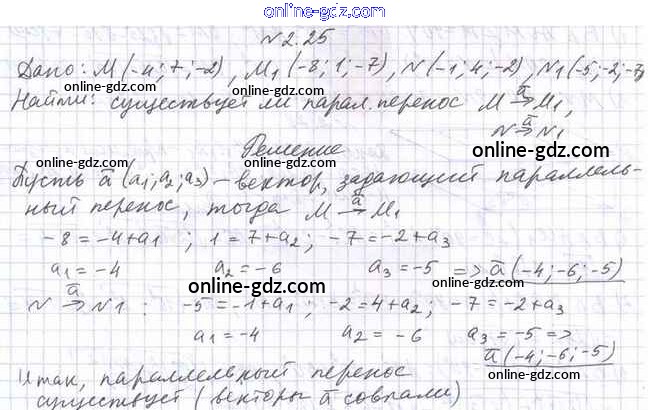 online-gdz.com
N 2.25
Дано: M(-4; 7; -2), M₁(-8; 1; -7), N(-1; 4; -2), N₁(-5; -2; -7)
Найти: существует ли парал. перенос M →ā M₁,
N →ā N₁
Решение
online-gdz.com
online-gdz.com
Пусть ā (a₁; a₂; a₃) – вектор, задающий параллель-
ный перенос, тогда M →ā M₁
-8 = -4+a₁ ; 1 = 7+a₂ ; -7 = -2+a₃
a₁ = -4 a₂ = -6 a₃ = -5 => ā(-4; -6; -5)
online-gdz.com
online-gdz.com
N →ā N1 : -5 = -1+a₁ ; -2 = 4+a₂ ; -7 = -2+a₃
a₁ = -4 a₂ = -6 a₃ = -5 =>
online-gdz.com
ā(-4; -6; -5)
online-gdz.com
Итак, параллельный перенос
существует (векторы ā совпали)
online-gdz.com
online-gdz.com